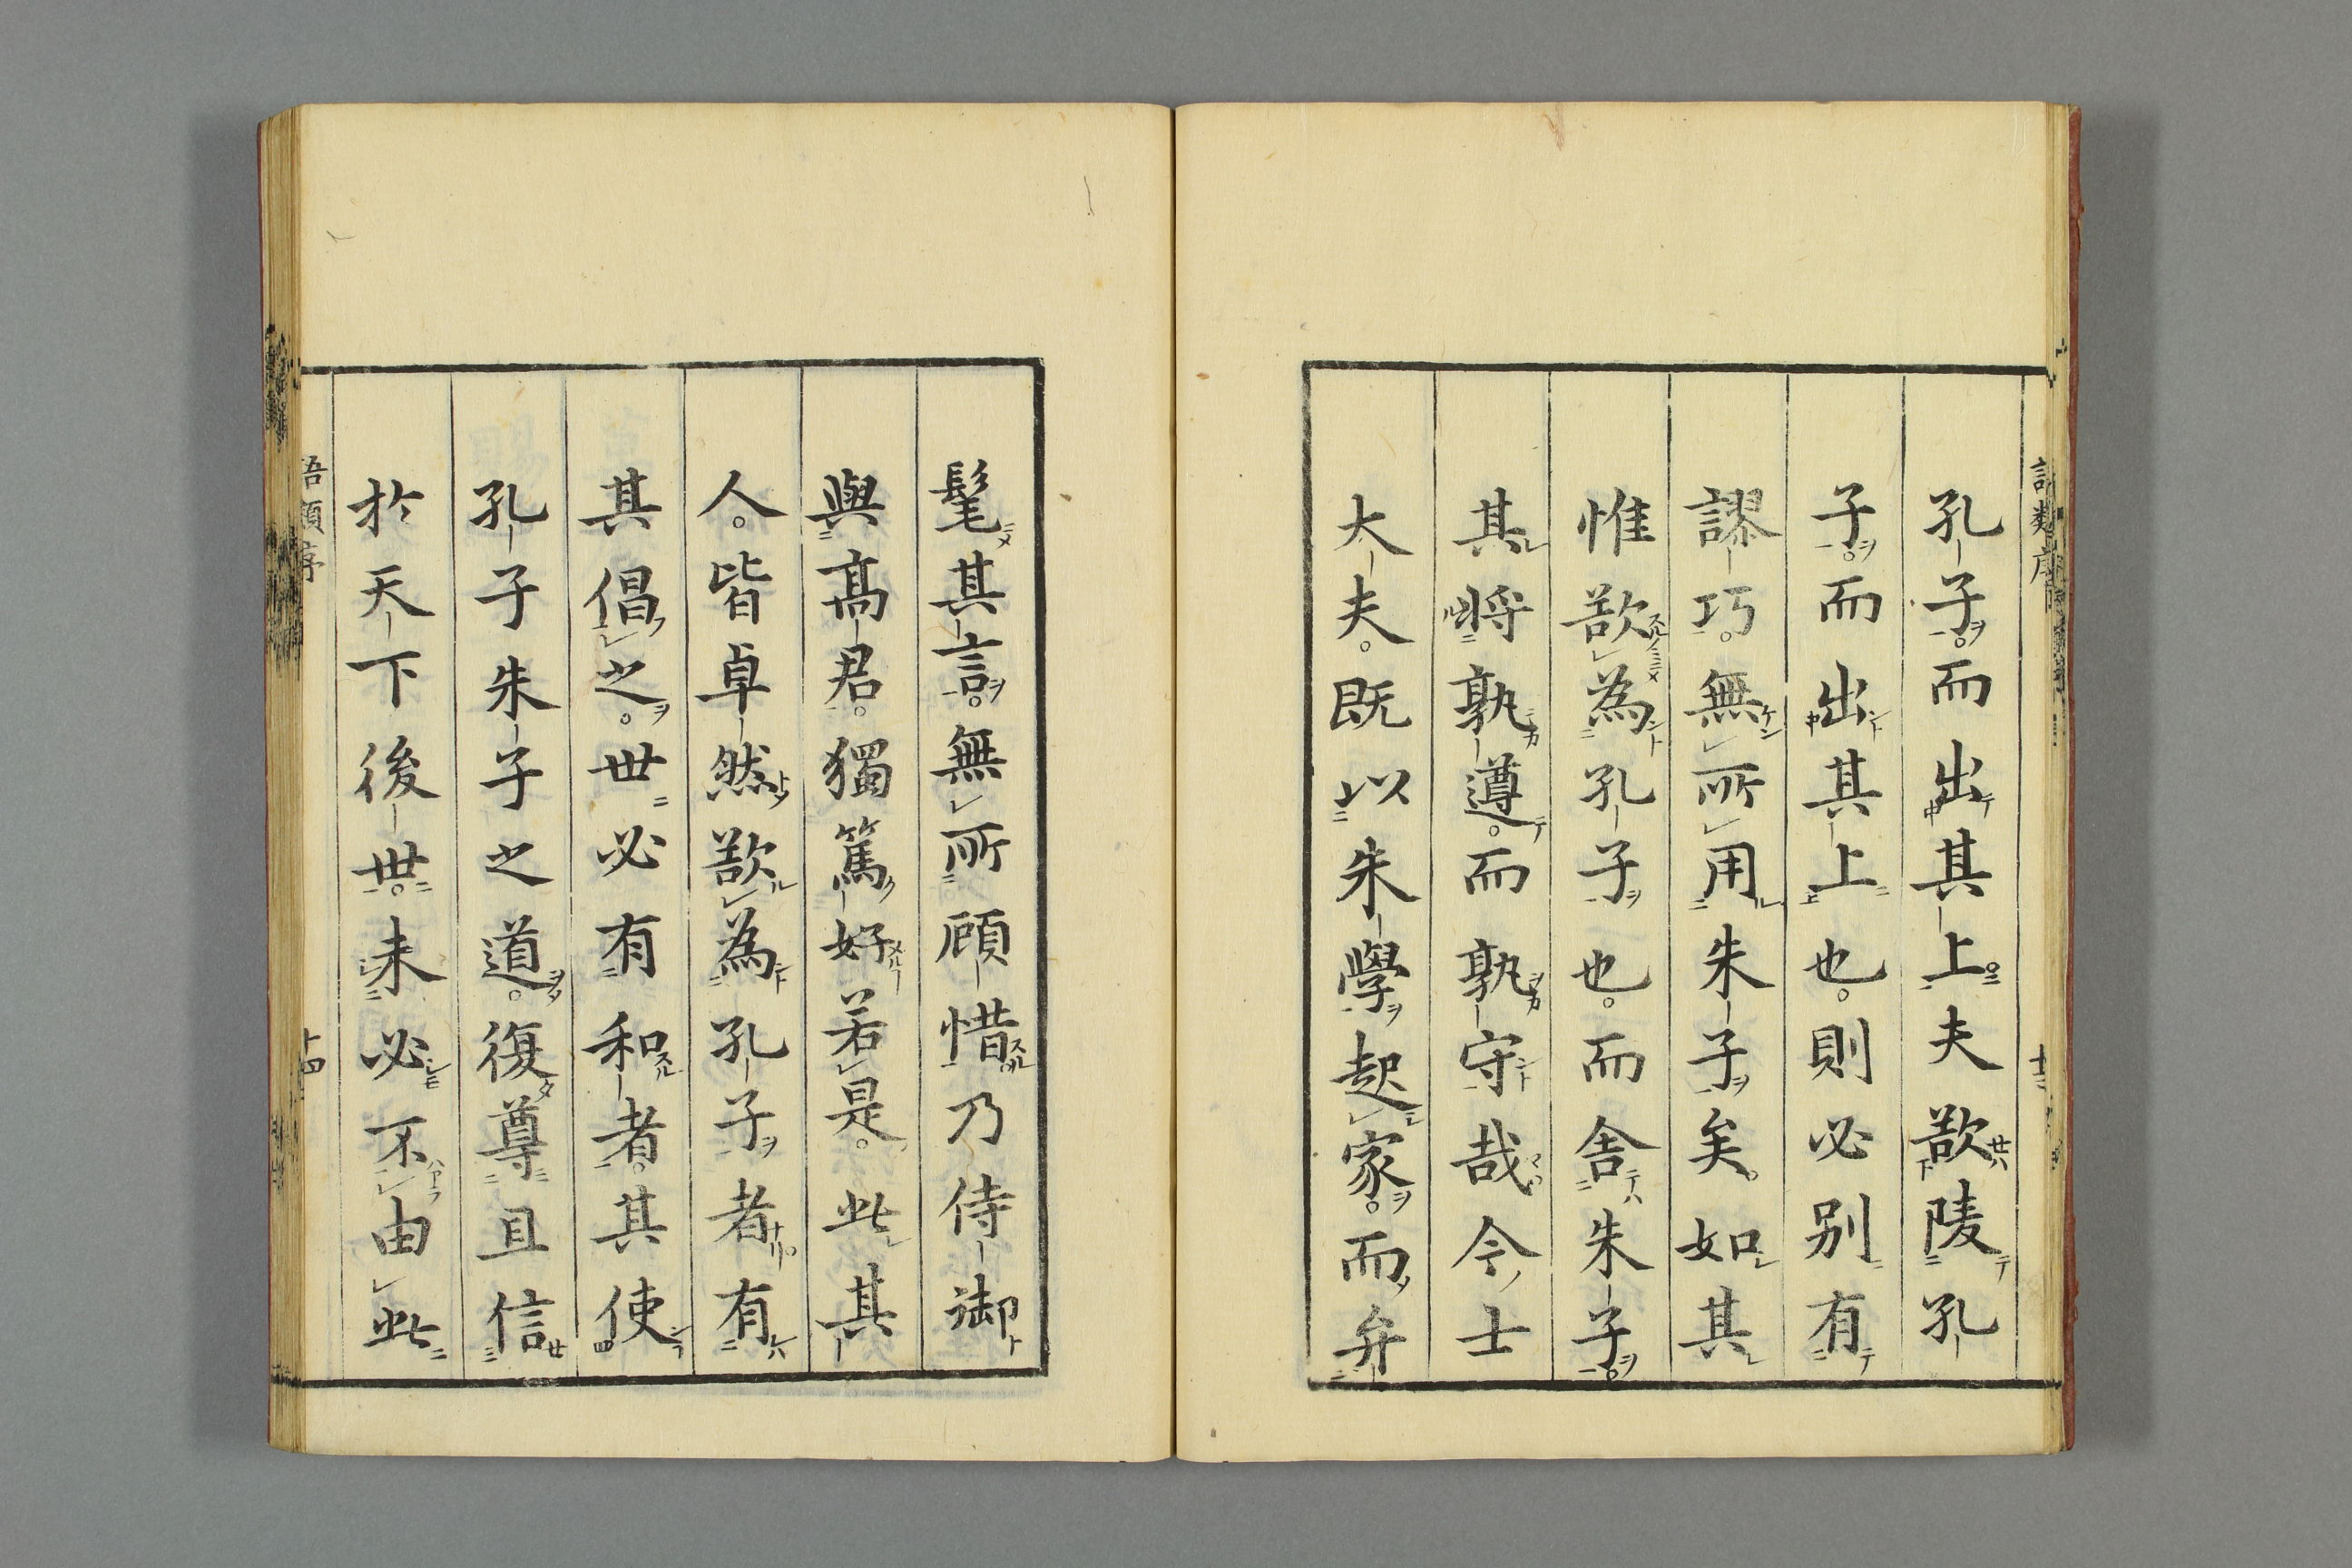 孔子而出其上夫欲陵孔
子而出其上也則必別有
謬巧無所用朱子矣如其
惟欲為孔子也而舍朱子
其將孰遵而孰守哉今士
大夫既以朱學起家而弁
髦其言無所顧惜乃侍御
與高君獨篤好若是此其
人皆卓然欲為孔子者有
其倡之世必有和者其使
孔子朱子之道復尊且信
於天下後世未必不由此
語類序
十四